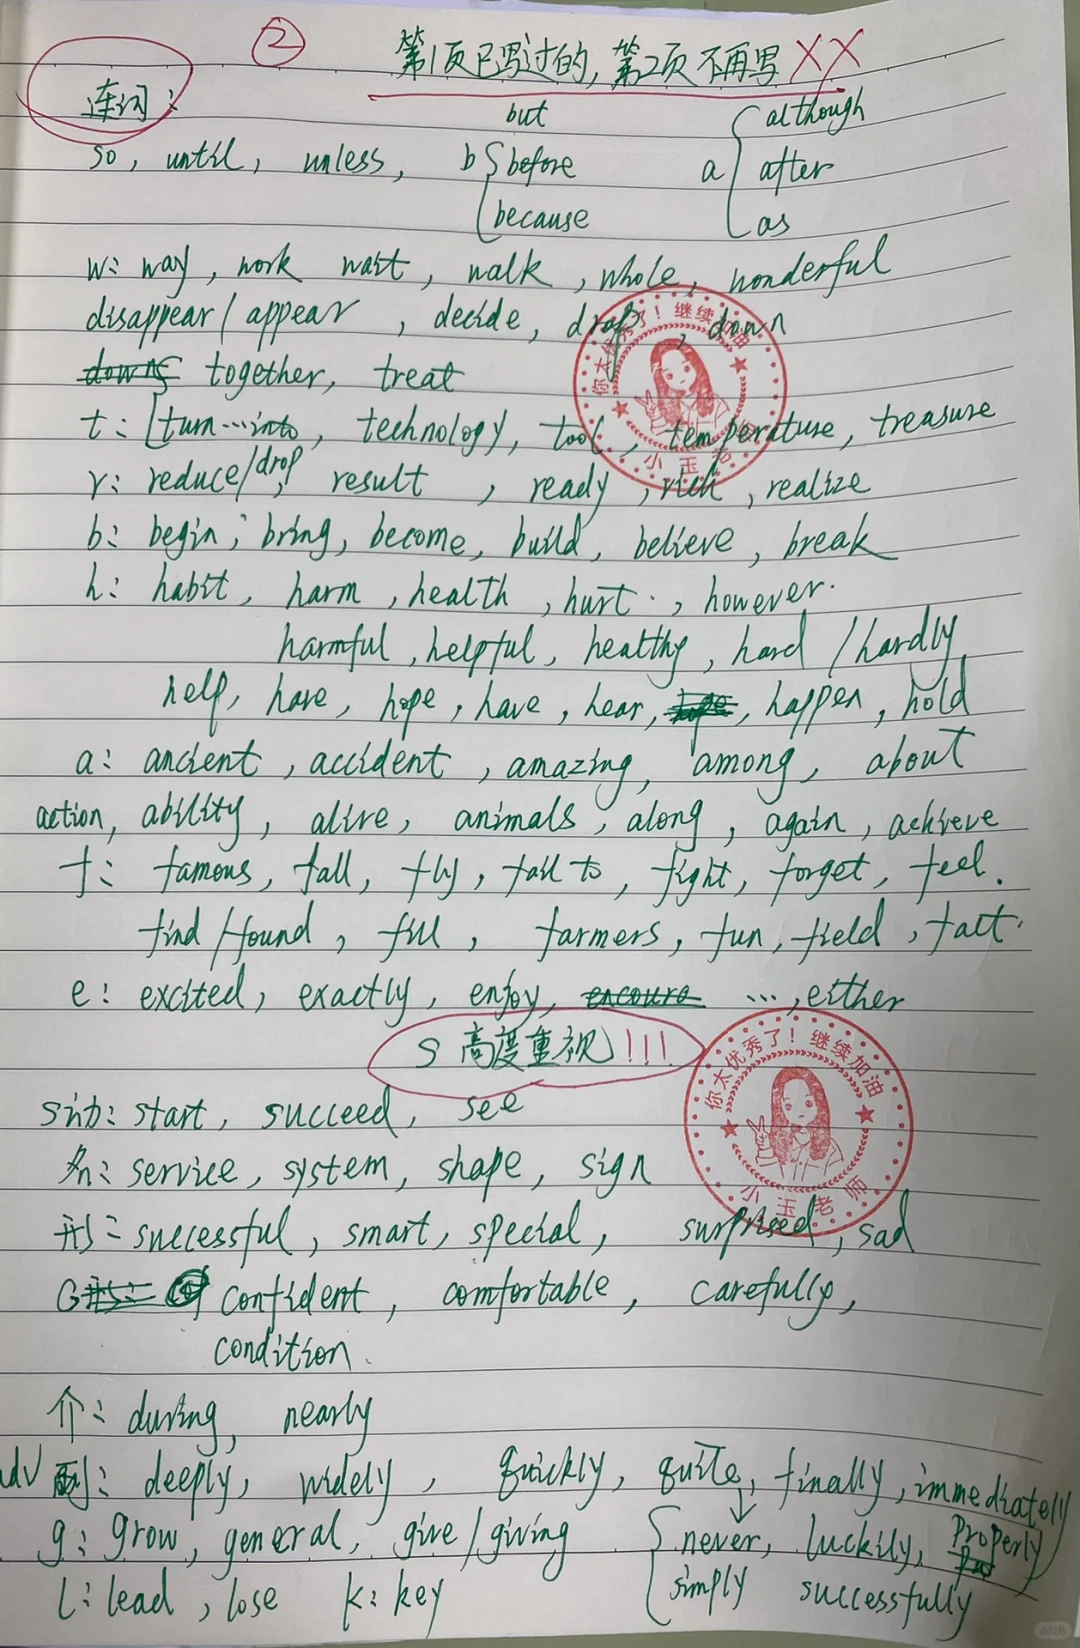 ② 第1页已写过的,第2页不再写 XX
连词:
but although
so, until, unless, b{before a{after
because as
w: way, work wait, walk, whole, wonderful
disappear/appear, decide, drop, down
downs together, treat
t: [turn...into, technology, tool, temperature, treasure
r: reduce/drop, result, ready, rich, realize
b: begin, bring, become, build, believe, break
h: habit, harm, health, hurt, however.
harmful, helpful, healthy, hard / hardly
help, have, hope, have, hear, hope, happen, hold
a: ancient, accident, amazing, among, about
action, ability, alive, animals, along, again, achieve
f: famous, fall, fly, fail to, fight, forget, feel.
find/found, fill, farmers, fun, field, fact.
e: excited, exactly, enjoy, encoura ..., either
S 高度重视!!!
S动: start, succeed, see
名: service, system, shape, sign
形: successful, smart, special, surprised, sad
C confident, comfortable, carefully,
condition.
介: during, nearly
adv 副: deeply, widely, quickly, quite, finally, immediately
g: grow, general, give/giving {never, luckily, properly
l: lead, lose k: key simply successfully
你太优秀了!继续加油
小玉老师
你太优秀了!继续加油
小玉老师
小红书